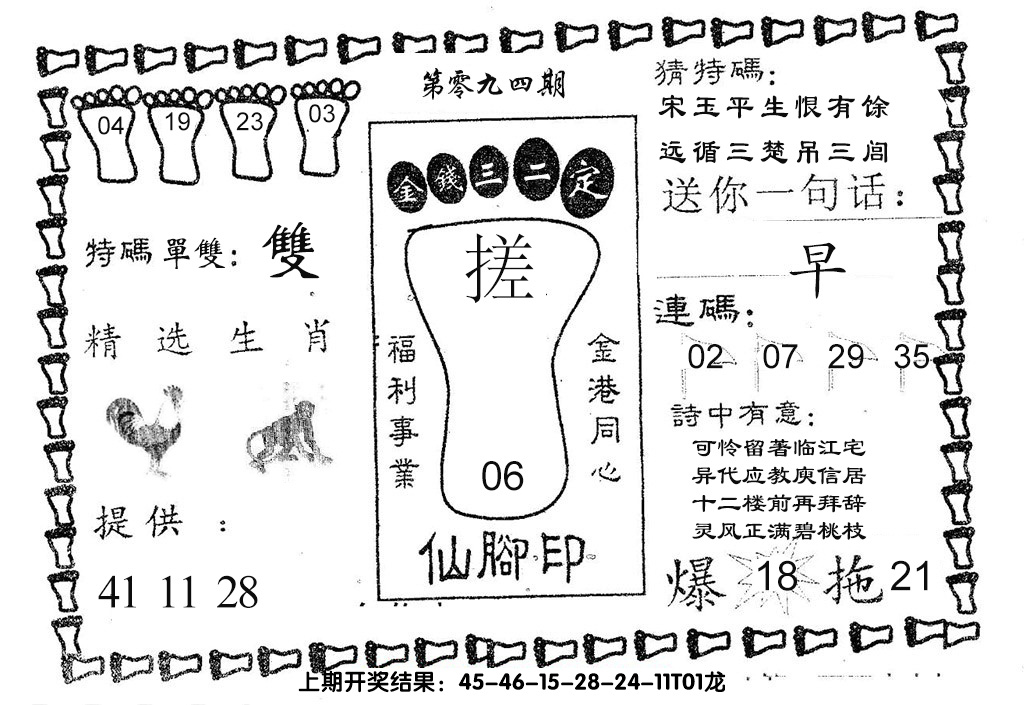 第零九四期
04 19 23 03
特碼單雙：雙
精选生肖
提供：
41 11 28
金錢三二定
搓
福利事業
金港同心
06
仙腳印
猜特碼：
宋玉平生恨有馀
远循三楚吊三闾
送你一句话：
早
連碼：
02 07 29 35
詩中有意：
可怜留著临江宅
异代应教庾信居
十二楼前再拜辞
灵风正满碧桃枝
爆 18 拖 21
上期开奖结果：45-46-15-28-24-11T01龙